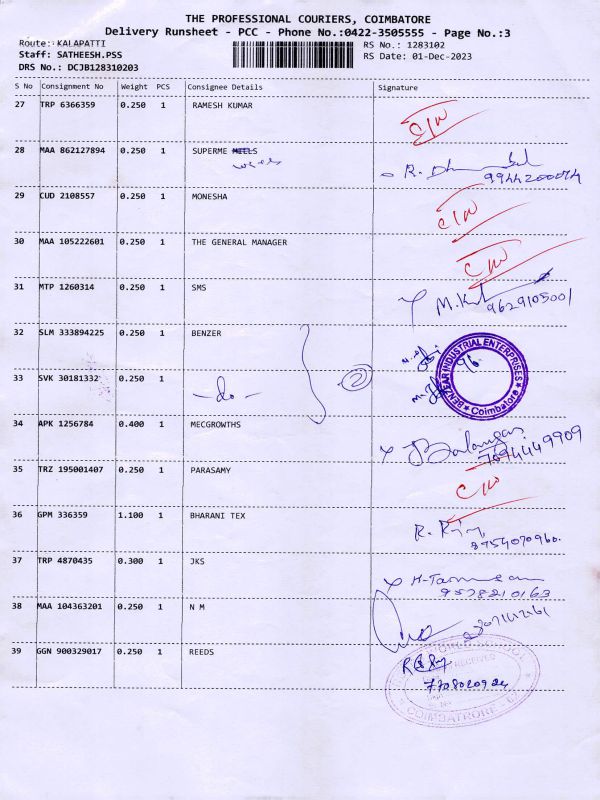 THE PROFESSIONAL COURIERS, COIMBATORE
Delivery Runsheet - PCC - Phone No.:0422-3505555 - Page No.:3
Route: KALAPATTI RS No.: 1283102
Staff: SATHEESH.PSS RS Date: 01-Dec-2023
DRS No.: DCJB128310203
S No Consignment No Weight PCS Consignee Details Signature
27 TRP 6366359 0.250 1 RAMESH KUMAR
28 MAA 862127894 0.250 1 SUPERME MEELS
R. 9944200074
29 CUD 2108557 0.250 1 MONESHA
30 MAA 105222601 0.250 1 THE GENERAL MANAGER
31 MTP 1260314 0.250 1 SMS
9629105001
32 SLM 333894225 0.250 1 BENZER
BENZEAR INDUSTRIAL ENTERPRISES
Coimbatore
33 SVK 30181332 0.250 1 -do-
34 APK 1256784 0.400 1 MECGROWTHS
35 TRZ 195001407 0.250 1 PARASAMY
36 GPM 336359 1.100 1 BHARANI TEX
37 TRP 4870435 0.300 1 JKS
9578210163
38 MAA 104363201 0.250 1 N M
39 GGN 900329017 0.250 1 REEDS
WORLD SCHOOL
RECEIVED
7708020924